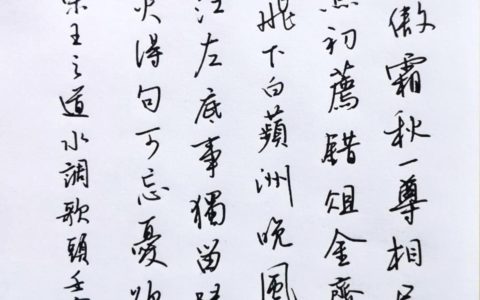 傲霜秋一尊相
初薦錯俎金齏
飛下白蘋洲晚風
江左底事獨留
得句可忘憂
王之道水調歌頭